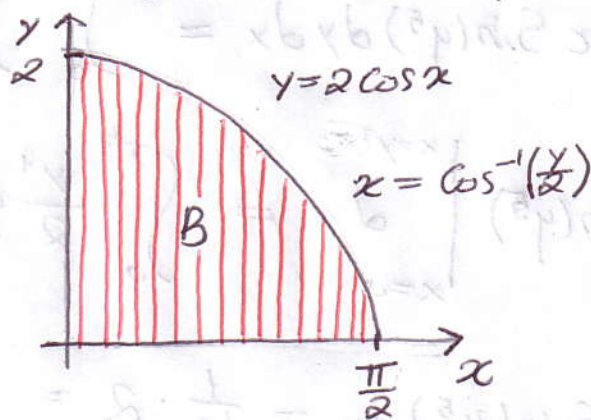 y
2
y=2cosx
x = cos⁻¹(y/2)
B
π/2
x